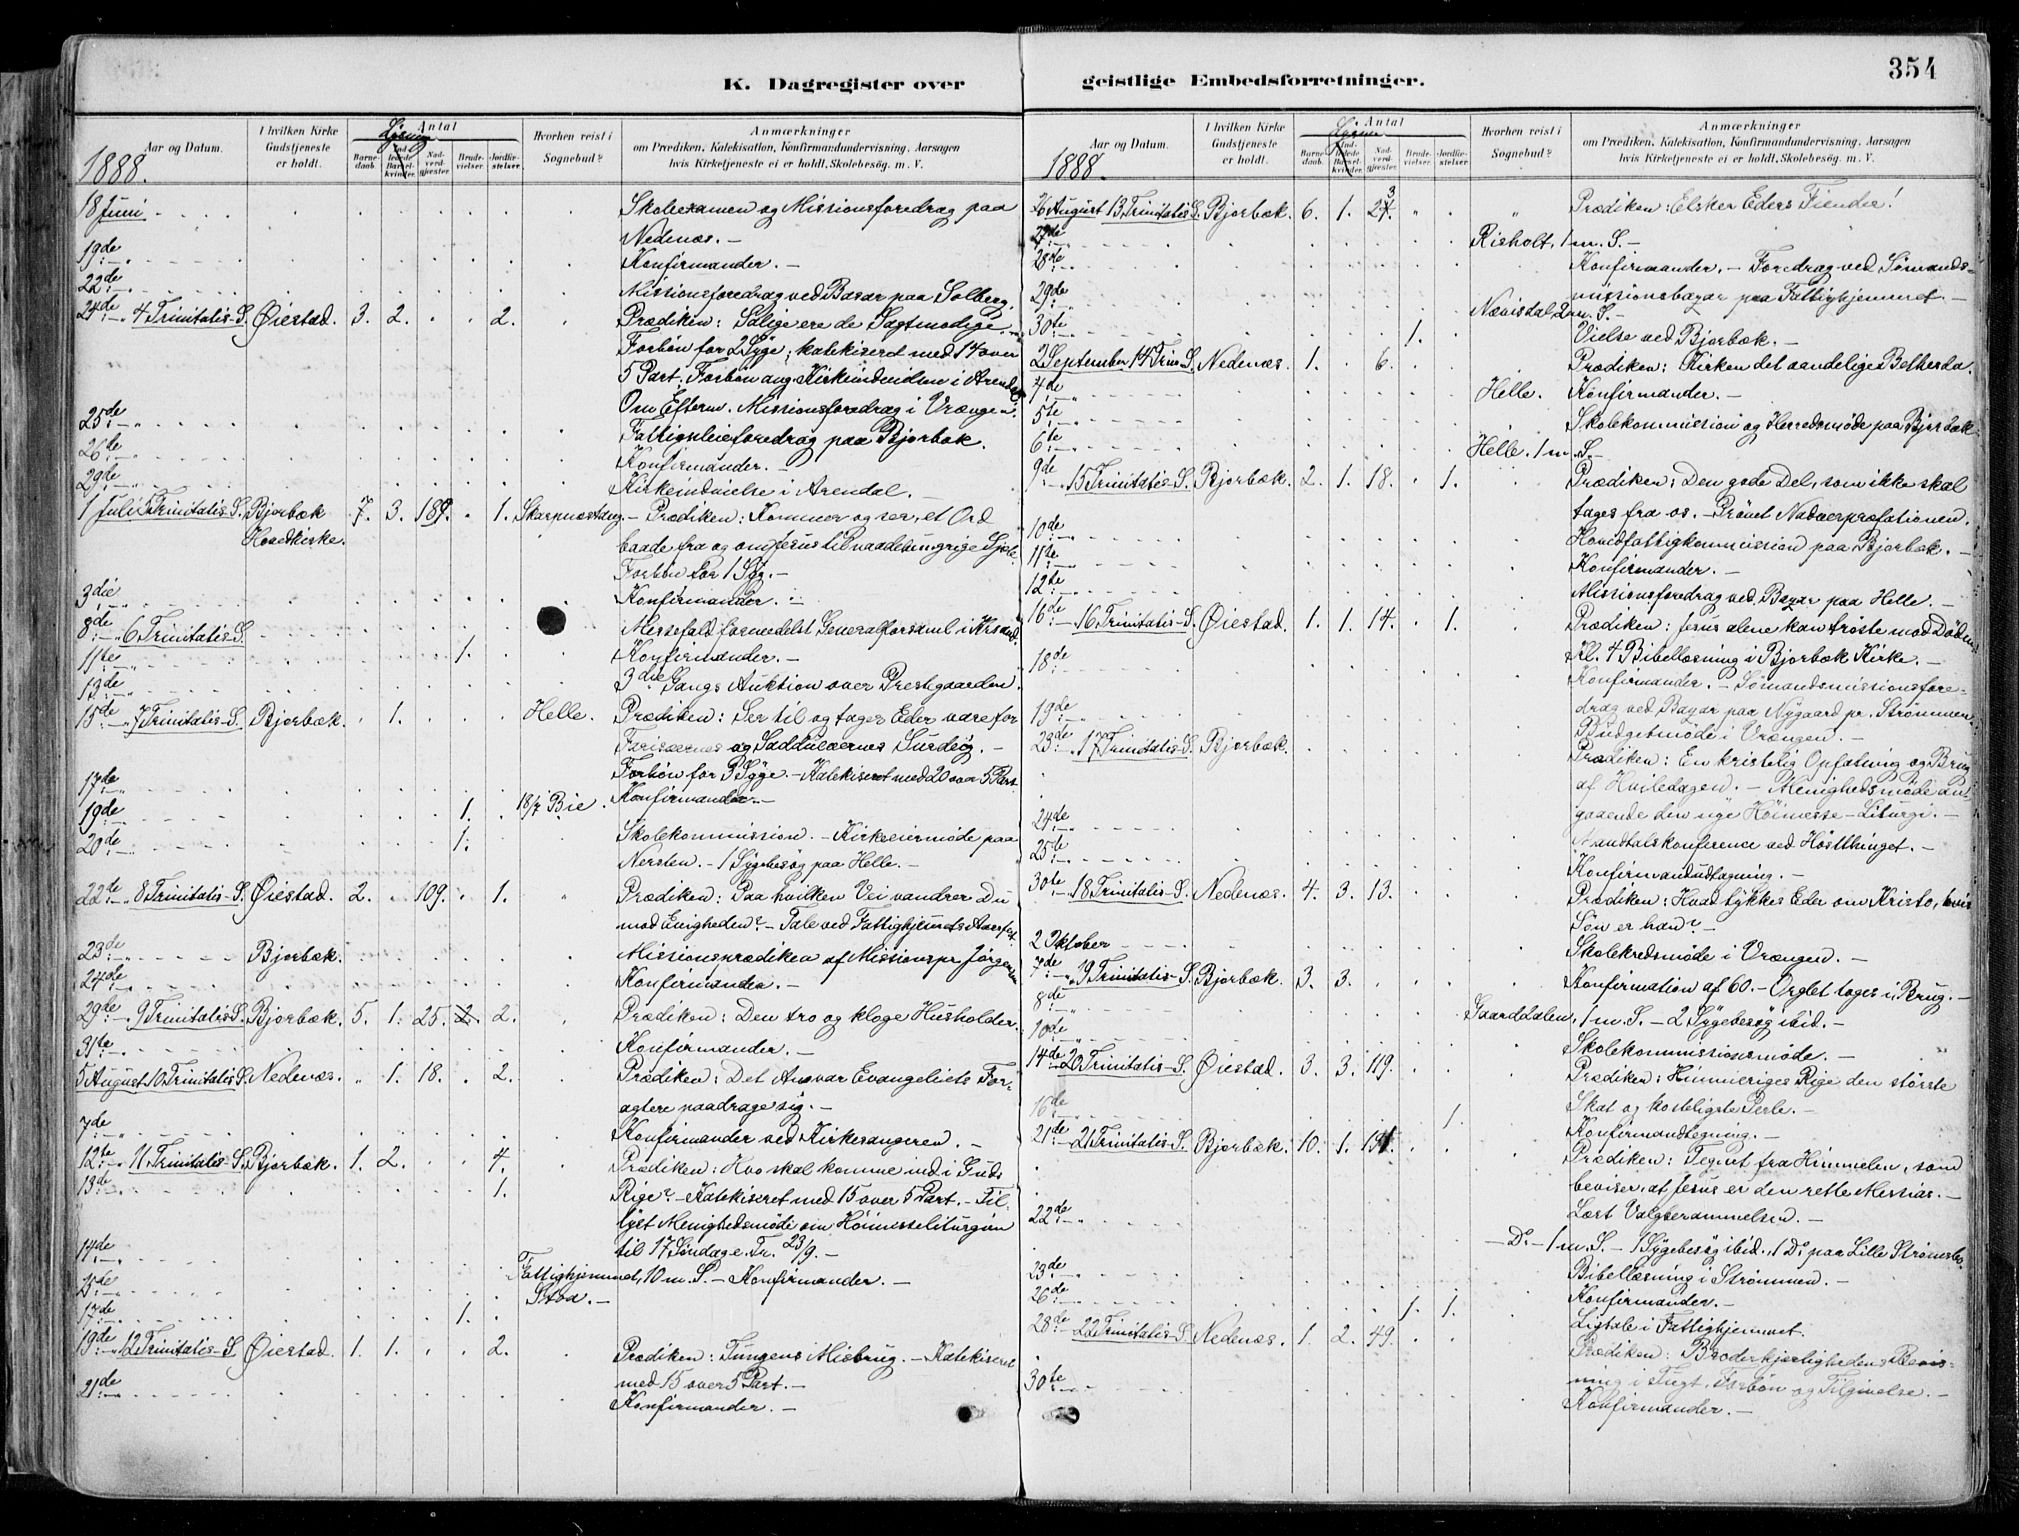 K. Dagregister over
Aar og Datum.
I hvilken Kirke Gudstjeneste er holdt.
Antal
Barnedaab.
Indledede Barselkvinder.
Nadverdgjæster.
Brudevielser.
Jordfæstelser.
Hvorhen reist i Sognebud?
Anmærkninger
om Prædiken, Katekisation, Konfirmandundervisning, Aarsagen
hvis Kirketjeneste ei er holdt, Skolebesøg. m. V.
1888.
18 Juni Skoleexamen og Missionsforedrag paa
Nedenæs. —
19de Konfirmander. —
22de Missionsforedrag ved Basar paa Solberg.
24de 4 Trinitatis S. Øiestad. 3. 2. . . 2. Prædiken: Salige ere de Sagtmodige
Forbøn for 2 Syge; katekiseret med 14 over
5 Part. Forbøn ang. Kirkeindvielsen i Arendal
Om Efterm. Missionsforedrag i Vrængen.
25de Fattigpleieforedrag paa Bjorbæk.
26de Konfirmander. —
29de Kirkeindvielse i Arendal. —
1 Juli 5 Trinitatis S. Bjorbæk 7. 3. 189. . 1. — Prædiken: Kommer og ser, et Ord
Hovedkirke. baade fra og om Jesus til naadehungrige Sjæle.
Forbøn for 1 Syg. —
3die Konfirmander. —
8de 6 Trinitatis S. Messefald formedelst Generalforsaml. i Krsand.
11te 1. Konfirmander. —
13de 3die Gangs Auktion over Prestgaarden.
15de 7 Trinitatis-S. Bjorbæk. . 1. . . . Helle. Prædiken: Ser til og tager Eder vare for
Farisæernes og Sadducæernes Surdeig. —
Forbøn for 3 Syge. — Katekiseret med 20 over 5 Part
17de Konfirmander. —
19de 1. 18/7 Bie.
20de 1. Skolekommission. — Kirkeeiermøde paa
Nersten. — 1 Sygebesøg paa Helle. —
22de 8 Trinitatis-S. Øiestad. 2. . 109. . 1. Prædiken: Paa hvilken Vei vandrer Du
mod Evigheden? — Tale ved Fattighjemmets Aarsfest.
23de Bjorbæk. Missionsprædiken af Missionspr. Jørgensen
24de Konfirmander. —
29de 9 Trinitatis S. Bjorbæk. 5. 1. 25. 2. 2. Prædiken: Den tro og kloge Husholder.
31te Konfirmander. —
5 August 10 Trinitatis S. Nedenæs. „ 1. 18. . 2. Prædiken: Det Ansvar Evangeliets For-
agtere paadrage sig. —
7de Konfirmander ved Kirkesangeren. —
12te 11 Trinitatis S. Bjorbæk. 1. 2. . . 4. Prædiken: Hvo skal komme ind i Guds
13de 1. Rige? — Katekiseret med 15 over 5 Part. — Til-
lyst Menighedsmøde om Høimesseliturgien
til 17 Søndag e. Tr. 23/9. —
14de Fattighjemmet, 10 m. S. — Konfirmander. —
15de Stoa. —
17de 1.
19de 12 Trinitatis-S. Øiestad. 1. 1. . . 2. Prædiken: Tungens Misbrug. — Katekiseret
med 15 over 5 Part. —
21de Konfirmander. —
geistlige Embedsforretninger.
354
Aar og Datum.
I hvilken Kirke Gudstjeneste er holdt.
Antal
Barnedaab.
Indledede Barselkvinder.
Nadverdgjæster.
Brudevielser.
Jordfæstelser.
Hvorhen reist i Sognebud?
Anmærkninger
om Prædiken, Katekisation, Konfirmandundervisning, Aarsagen
hvis Kirketjeneste ei er holdt, Skolebesøg. m. V.
1888.
26 August 13 Trinitatis S. Bjorbæk. 6. 1. „ . „ Prædiken: Elsker Eders Fiender!
27de Risholt, 1 m. S. —
28de Konfirmander. — Foredrag ved Sømands-
29de missionsbazar paa Fattighjemmet. —
Nævisdal, 2 m. S. —
30te 1. Vielse ved Bjorbæk. —
2 September 14 Trin. S. Nedenæs. 1. . 6. Prædiken: Kirken det aandelige Bethesda.
4de Helle. Konfirmander. —
5te Skolekommission og Herredsmøde paa Bjorbæk
6te Helle. 1 m. S. —
9de 15 Trinitatis-S. Bjorbæk. 2. 1. 18. . 1. Prædiken: Den gode Del, som ikke skal
tages fra os. — Prøvet Nadverpræfationen.
10de Hovedfattigkommission paa Bjorbæk. —
11te Konfirmander. —
12te Missionsforedrag ved Bazar paa Helle. —
16de 16 Trinitatis-S. Øiestad. 1. 1. 14. . 1. Prædiken: Jesus alene kan trøste mod Døden
Kl. 4 Bibellæsning i Bjorbæk Kirke. —
18de Konfirmander. — Sømandsmissionsfore-
drag ved Bazar paa Nygaard pr. Strømmen.
19de Budgetmøde i Vrængen. —
23de 17 Trinitatis-S. Bjorbæk. Prædiken: En kristelig Opfatning og Brug
af Hviledagen. — Menighedsmøde an-
gaaende den nye Høimesse-Liturgi. —
24de Mandtalskonference ved Høstthinget. —
25te Konfirmandudtagning. —
30te 18 Trinitatis-S. Nedenæs. 4. 3. 13. Prædiken: Hvad tykkes Eder om Kristo, hvis
Søn er han? —
2 Oktober Skolekredsmøde i Vrængen. —
7de 19 Trinitatis-S. Bjorbæk. 3. 3. Konfirmation af 60. — Orglet tages i Brug. —
8de Saarddalen, 1 m. S. — 2 Sygebesøg ibid. —
10de Skolekommissionsmøde. —
14de 20 Trinitatis-S. Øiestad. 3. 3. 119. Prædiken: Himmeriges Rige den største
Skat og kosteligste Perle. —
16de 1. Konfirmandtegning. —
21de 21 Trinitatis-S. Bjorbæk. 10. 1. Prædiken: Tegnet fra Himmelen, som
beviser, at Jesus er den rette Messias. —
Læst Valgberammelsen. —
22de — Do — 1 m. S. — 1 Sygebesøg ibid. 1 Do paa Lille Strømsbo.
23de Bibellæsning i Strømmen. —
26de Konfirmander. —
1. 1. Ligtale i Fattighjemmet.
28de 22 Trinitatis-S. Nedenæs. 1. 2. 49. Prædiken: Broderkjærlighedens Bevis-
ning i Tugt, Forbøn og Tilgivelse. —
30te Konfirmander. —